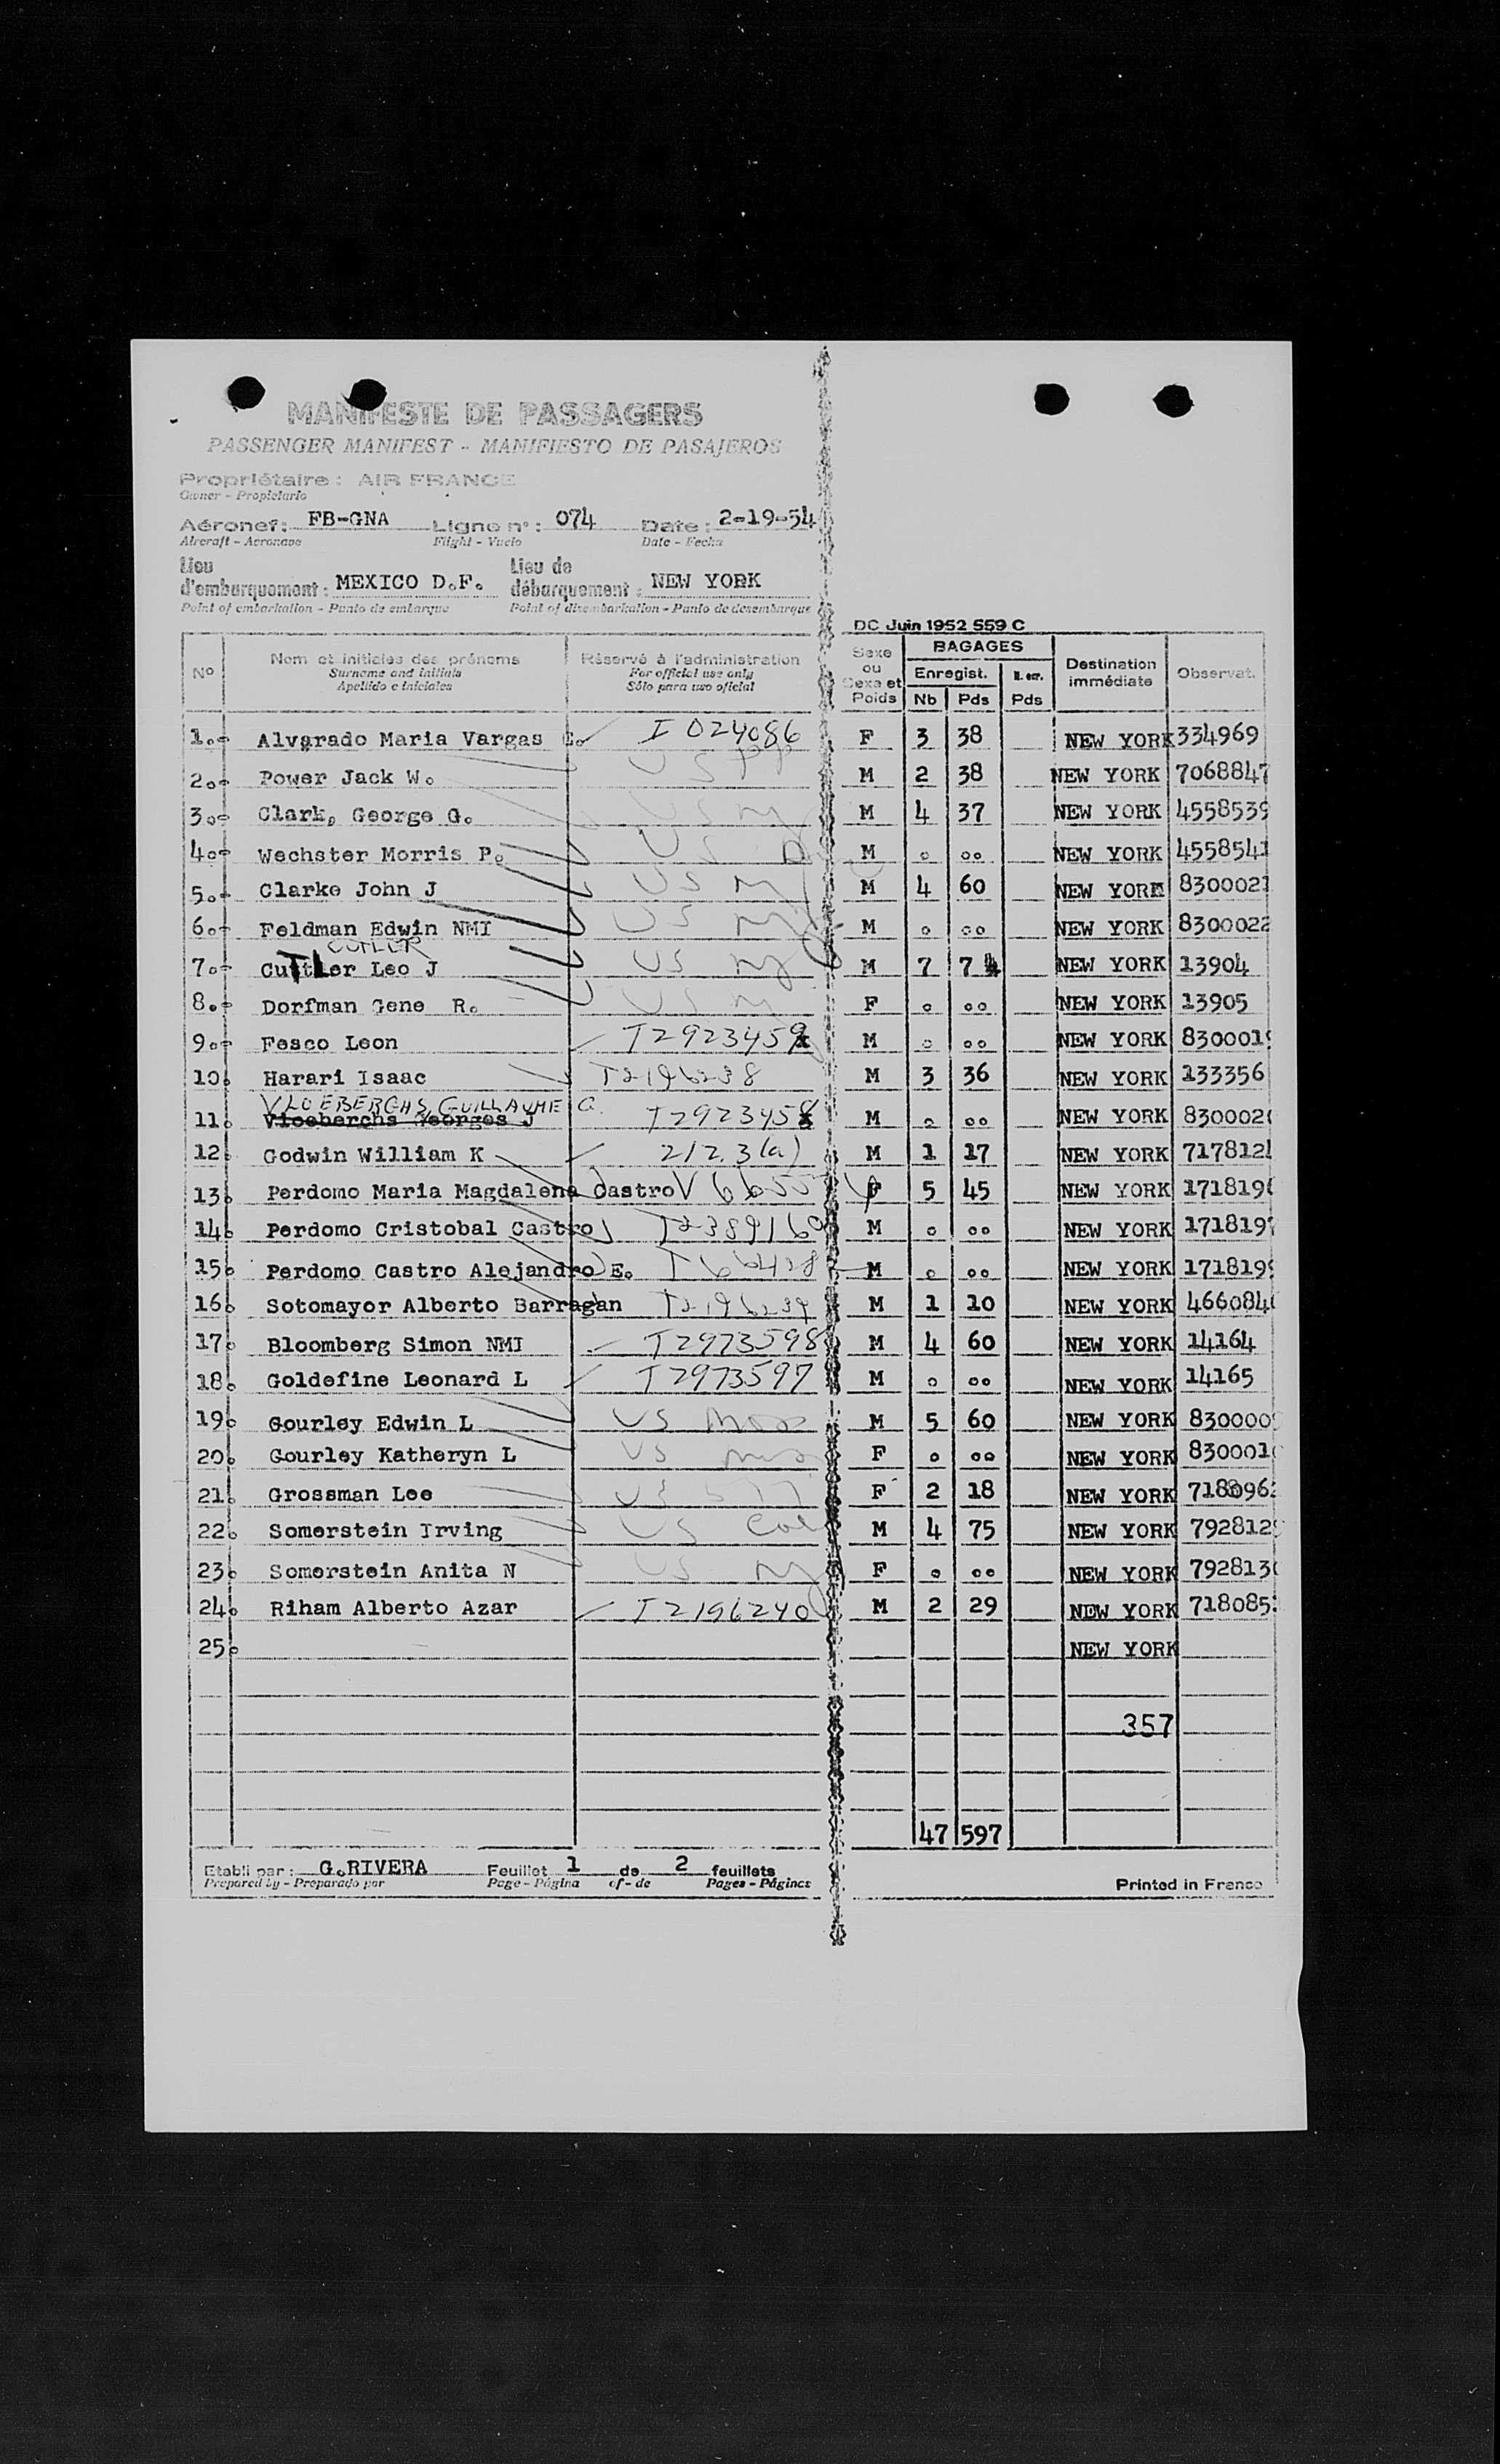 MANIFESTE DE PASSAGERS
PASSENGER MANIFEST - MANIFIESTO DE PASAJEROS
Propriétaire : AIR FRANCE
Owner - Propietario
Aéronef : FB-GNA Ligne n° : 074 Date : 2-19-54
Aircraft - Aeronave Flight - Vuelo Date - Fecha
Lieu d'embarquement : MEXICO D.F. Lieu de débarquement : NEW YORK
Point of embarkation - Punto de embarque Point of disembarkation - Punto de desembarque
DC Juin 1952 559 C
N° Nom et initiales des prénoms Réservé à l'administration Sexe ou Sexa et Poids BAGAGES Destination immédiate Observat.
Surname and initials For official use only Enregist. Pds
Apellido e iniciales Sólo para uso oficial Nb Pds
1.- Alvarado Maria Vargas C. I 024086 F 3 38 NEW YORK 334969
2.- Power Jack W. US M 2 38 NEW YORK 7068847
3.- Clark, George G. US NY M 4 37 NEW YORK 4558539
4.- Wechster Morris P. US M o oo NEW YORK 4558541
5.- Clarke John J US NY M 4 60 NEW YORK 8300021
6.- Feldman Edwin NMI US NY M o oo NEW YORK 8300022
CUTLER
7.- Cuttler Leo J US NY M 7 74 NEW YORK 13904
8.- Dorfman Gene R. US NY F o oo NEW YORK 13905
9.- Fesco Leon T2923459 M o oo NEW YORK 8300019
10. Harari Isaac T2196238 M 3 36 NEW YORK 133356
VLOEBERGHS, GUILLAUME G.
11. Vloeberchs Georges J T2923458 M o oo NEW YORK 830002
12. Godwin William K 212.3(a) M 1 17 NEW YORK 717812
13. Perdomo Maria Magdalena Castro F 5 45 NEW YORK 171819
14. Perdomo Cristobal Castro T2389160 M o oo NEW YORK 171819
15. Perdomo Castro Alejandro E. M o oo NEW YORK 171819
16. Sotomayor Alberto Barragan T2196239 M 1 10 NEW YORK 466084
17. Bloomberg Simon NMI T2973598 M 4 60 NEW YORK 14164
18. Goldefine Leonard L T2973597 M o oo NEW YORK 14165
19. Gourley Edwin L US Mass M 5 60 NEW YORK 830000
20. Gourley Katheryn L US F o oo NEW YORK 830001
21. Grossman Lee US F 2 18 NEW YORK 718096
22. Somerstein Irving US M 4 75 NEW YORK 792812
23. Somerstein Anita N US NY F o oo NEW YORK 792813
24. Riham Alberto Azar T2196240 M 2 29 NEW YORK 718085
25. NEW YORK
357
47 597
Etabli par : G.RIVERA Feuillet 1 de 2 feuillets
Prepared by - Preparado por Page - Página of - de Pages - Páginas
Printed in France